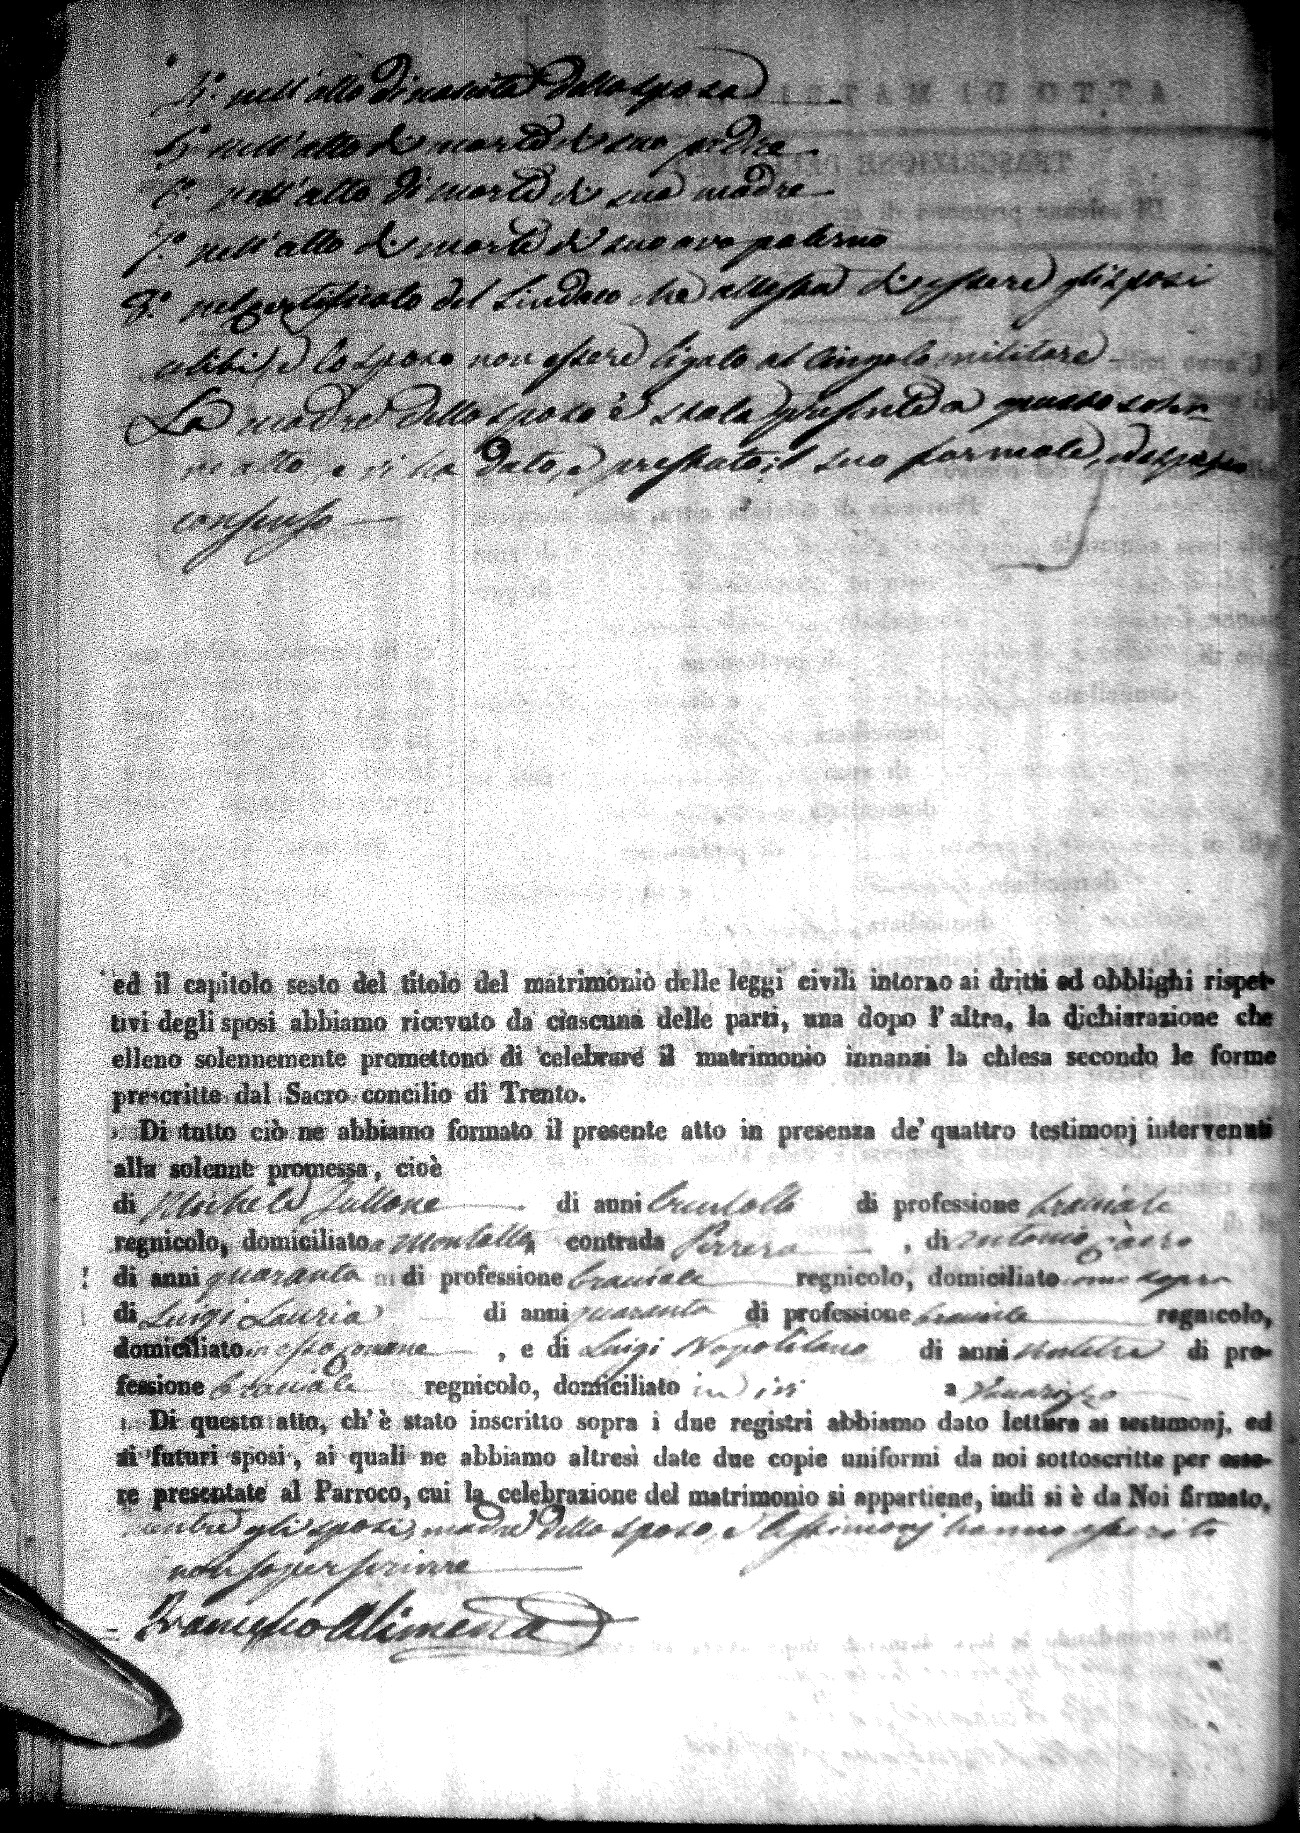 4.° nell'atto di nascita della sposa
5.° nell'atto di morte di suo padre
6.° nell'atto di morte di sua madre
7.° nell'atto di morte di suo avo paterno
8.° nel certificato del Sindaco che attesta di essere gli sposi
celibi, e lo sposo non essere ligato al cingolo militare
La madre dello sposo è stata presente a questo solen
ne atto, e vi ha dato, e prestato il suo formale, ed espresso
consenso
ed il capitolo sesto del titolo del matrimonio delle leggi civili intorno ai dritti ed obblighi rispet-
tivi degli sposi abbiamo ricevuto da ciascuna delle parti, una dopo l'altra, la dichiarazione che
elleno solennemente promettono di celebrare il matrimonio innanzi la chiesa secondo le forme
prescritte dal Sacro concilio di Trento.
Di tutto ciò ne abbiamo formato il presente atto in presenza de' quattro testimonj intervenuti
alla solenne promessa, cioè
di Michele di anni trentotto di professione bracciale
regnicolo, domiciliato a Montalto, contrada , di Antonio
di anni quaranta di professione bracciale regnicolo, domiciliato come sopra
di Luigi Lauria di anni quaranta di professione bracciale regnicolo,
domiciliato in esso comune , e di Luigi Napolitano di anni di pro-
fessione bracciale regnicolo, domiciliato in a
Di questo atto, ch'è stato inscritto sopra i due registri abbiamo dato lettura ai testimonj, ed
ai futuri sposi, ai quali ne abbiamo altresì date due copie uniformi da noi sottoscritte per esse-
re presentate al Parroco, cui la celebrazione del matrimonio si appartiene, indi si è da Noi firmato,
mentre gli sposi, madre dello sposo, e testimonj hanno asserito
non saper scrivere
Francesco Alimena